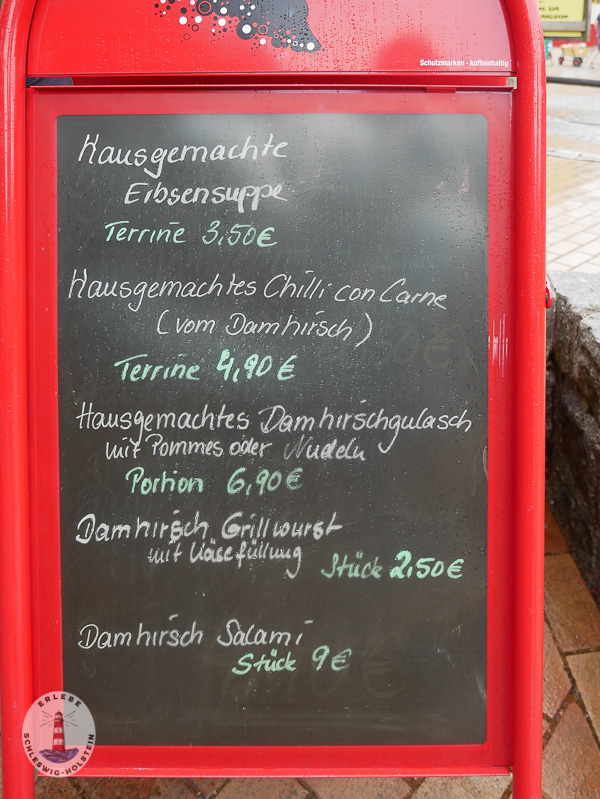 Schutzmarken · koffeinhaltig
Hausgemachte
Erbsensuppe
Terrine 3,50€
Hausgemachtes Chilli con Carne
(vom Damhirsch)
Terrine 4,90€
Hausgemachtes Damhirschgulasch
mit Pommes oder Nudeln
Portion 6,90€
Damhirsch Grillwurst
mit Käsefüllung
Stück 2,50€
Damhirsch Salami
Stück 9€
ERLEBE
SCHLESWIG-HOLSTEIN